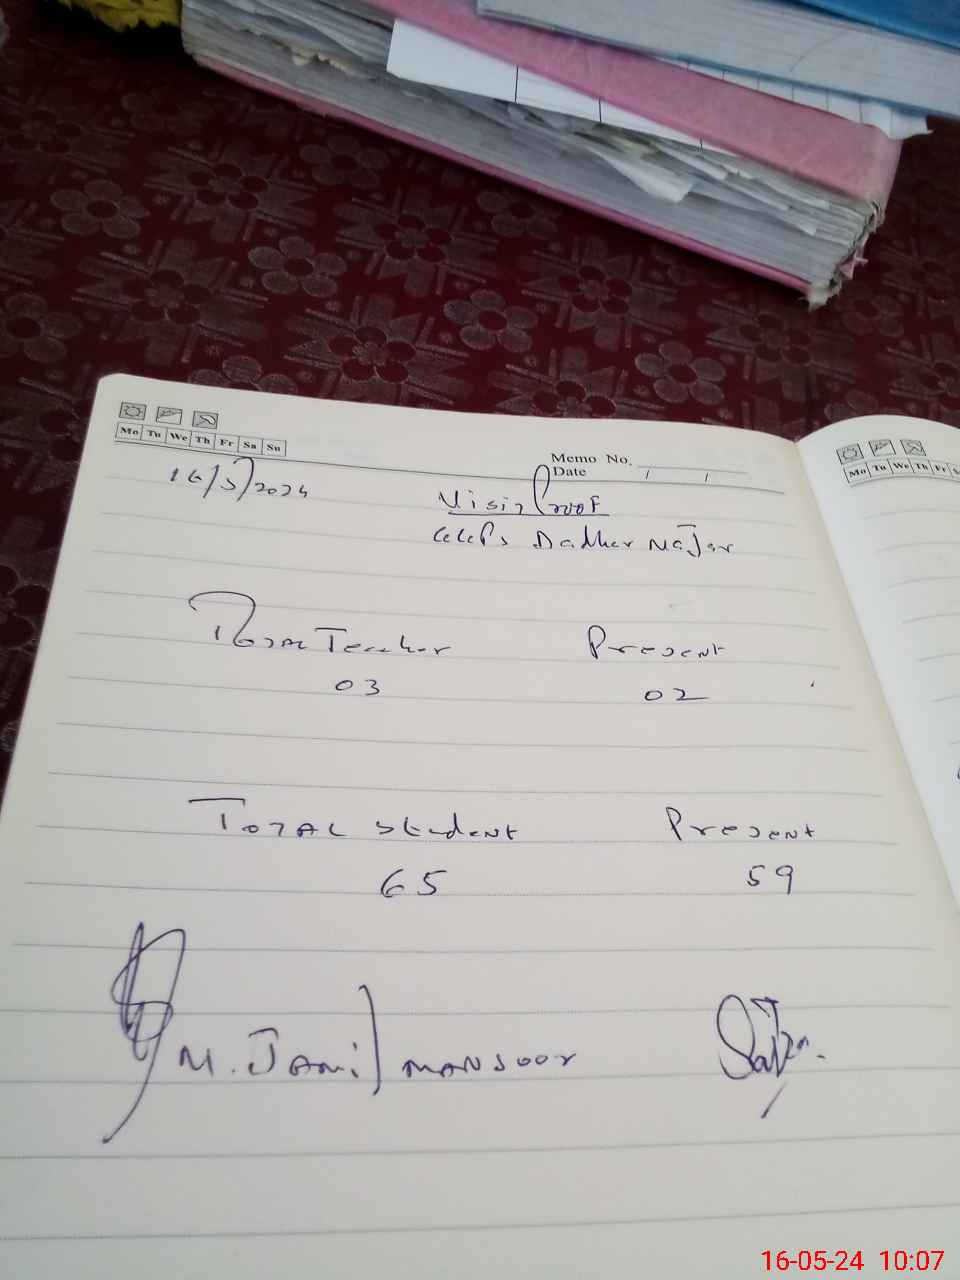 Mo Tu We Th Fr Sa Su
Memo No.
Date / /
Mo Tu We Th Fr S
16/5/2024
Visit Proof
GGPS Dadher Najar
Total Teacher Present
03 02
TOTAL student Present
65 59
M. JAMil MANSOOR
16-05-24 10:07